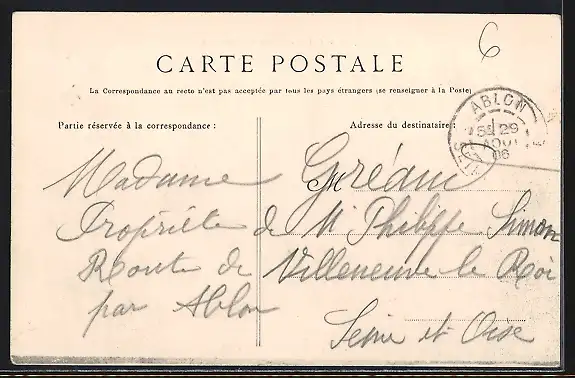 6
CARTE POSTALE
La Correspondance au recto n'est pas acceptée par tous les pays étrangers (se renseigner à la Poste)
Partie réservée à la correspondance :
Adresse du destinataire :
ABLON
5E 29
AOUT
06
Madame Gréau
Propriété de Mr Philippe Simon
Route de Villeneuve le Roi
par Ablon
Seine et Oise